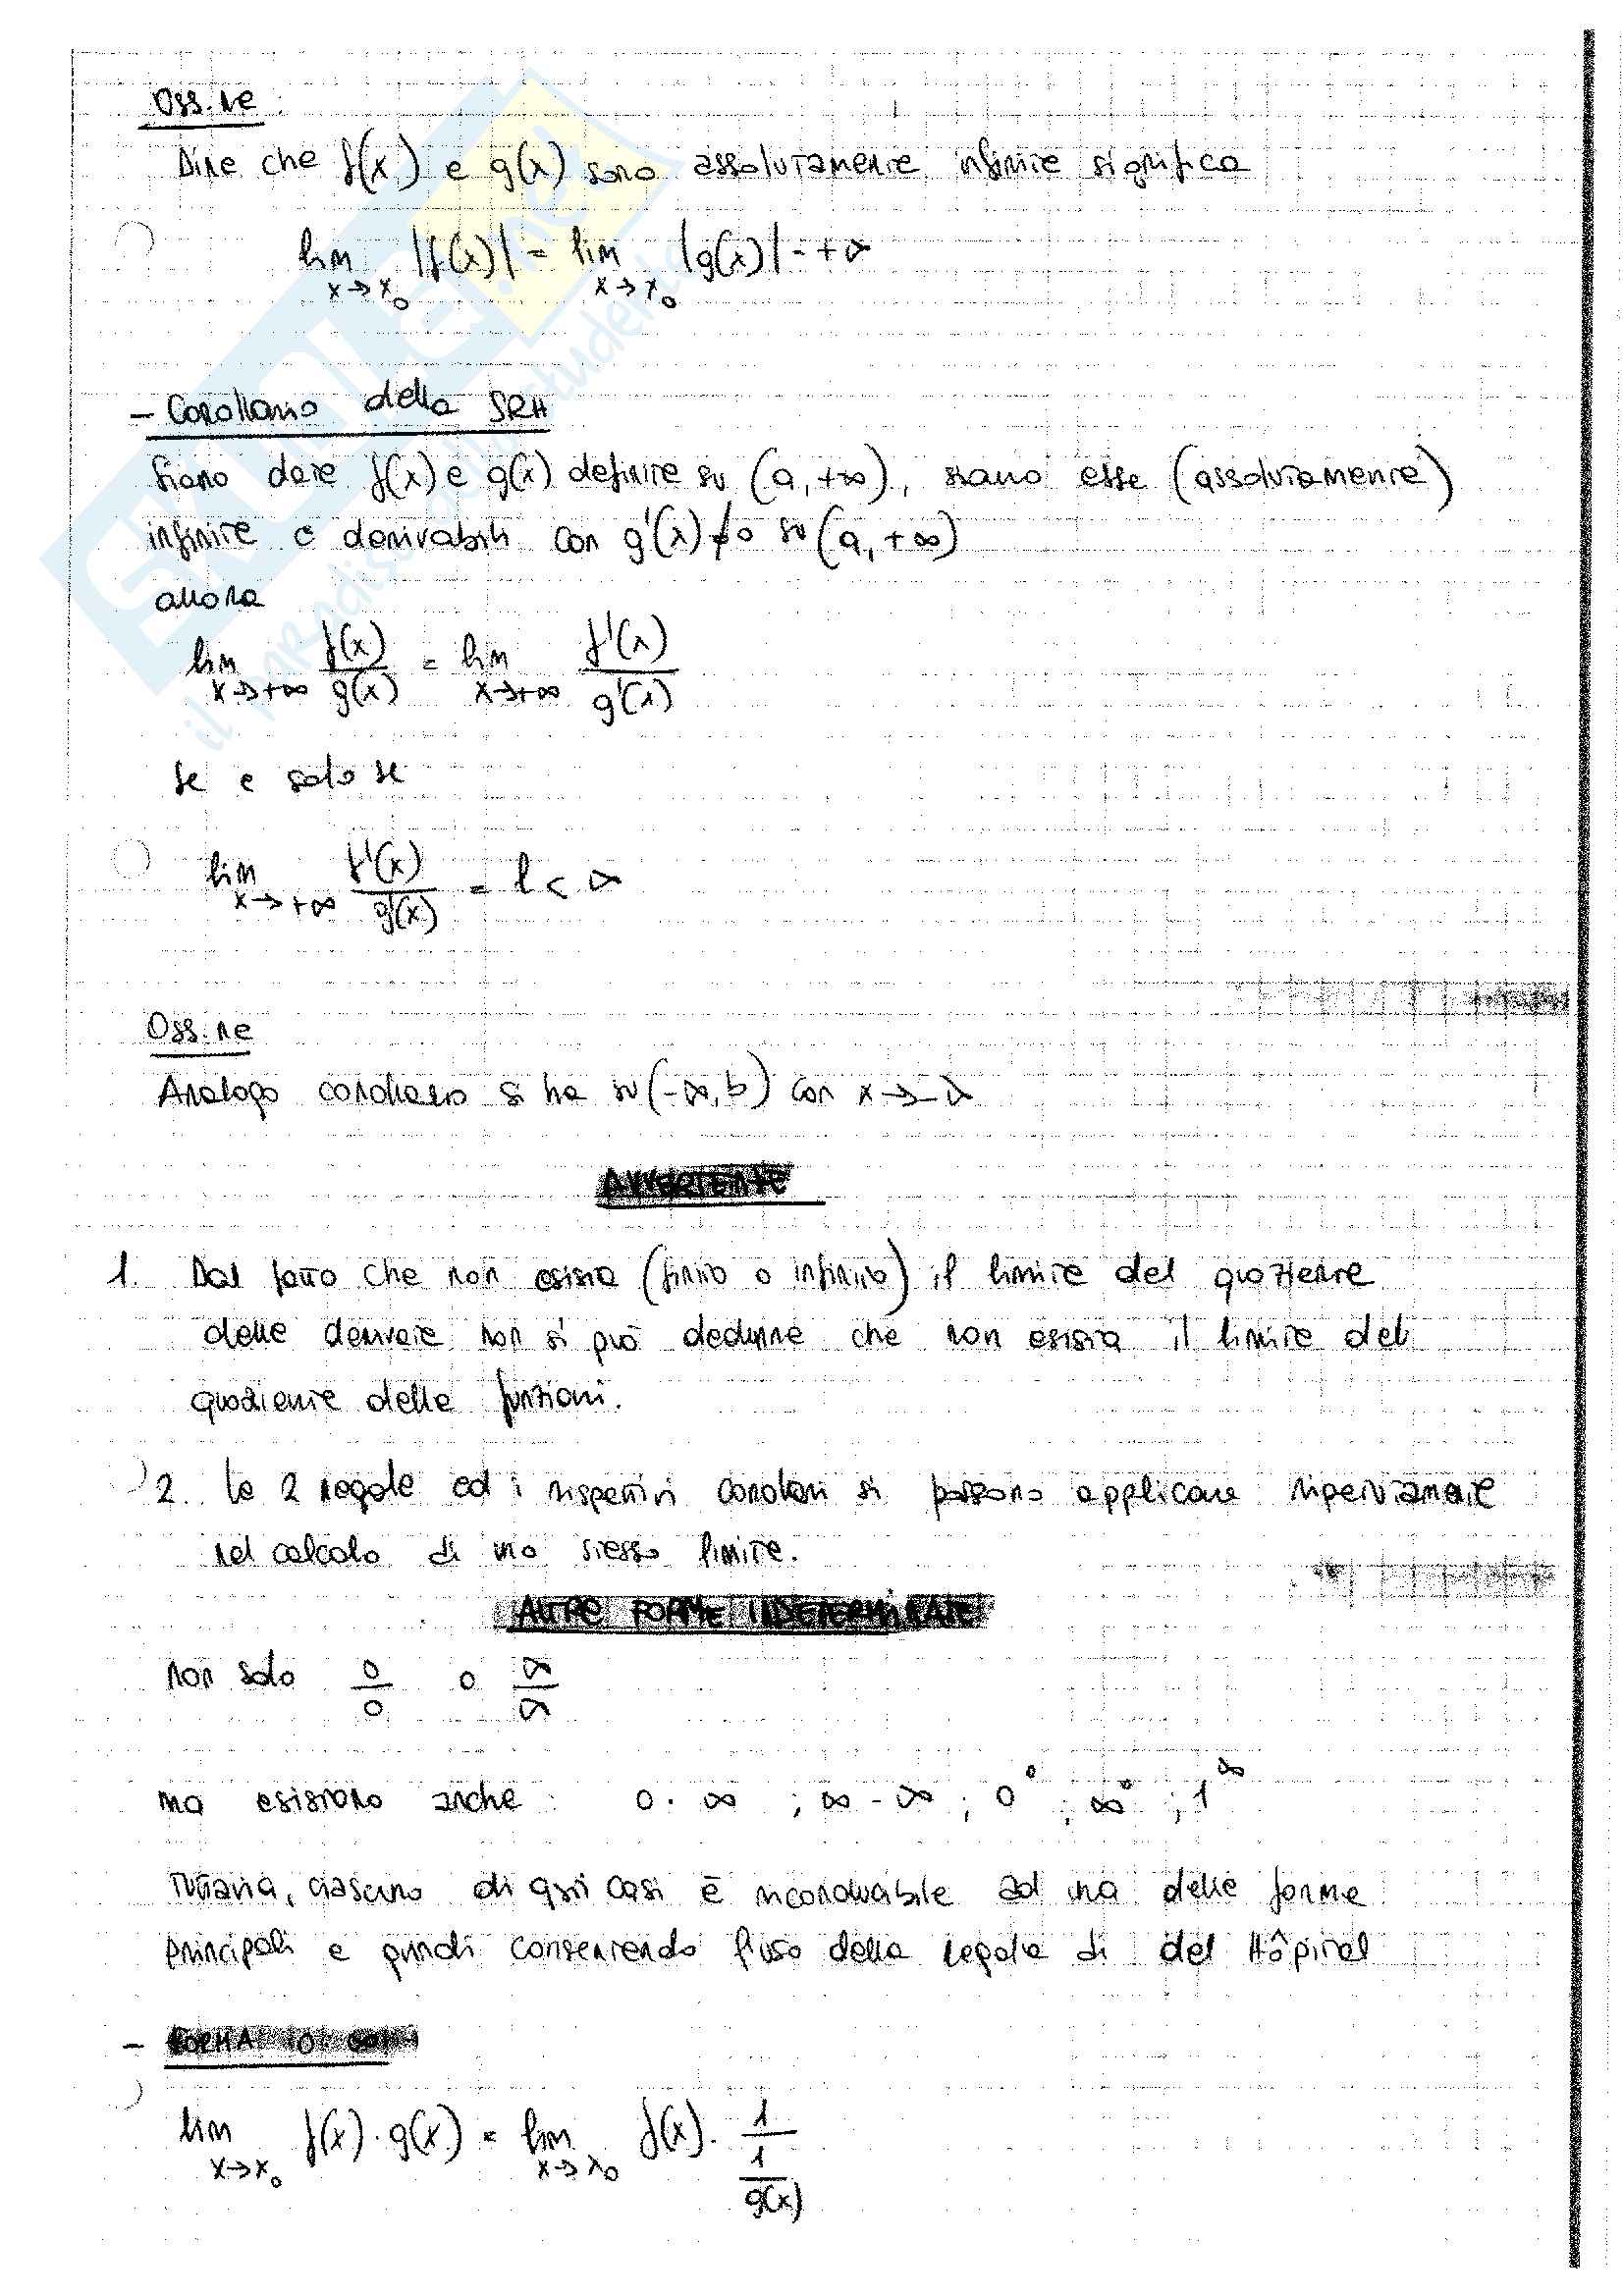 Oss.ne:
Dire che f(x) e g(x) sono assolutamente infinite significa
lim x→x₀ |f(x)| = lim x→x₀ |g(x)| = +∞
- Corollario della SRH
Siano date f(x) e g(x) definite su (a, +∞), siano esse (assolutamente)
infinite e derivabili con g'(x) ≠ 0 su (a, +∞)
allora
lim x→+∞ f(x)/g(x) = lim x→+∞ f'(x)/g'(x)
se e solo se
lim x→+∞ f'(x)/g'(x) = l < ∞
Oss.ne
Analogo corollario si ha su (-∞, b) con x→-∞
AVVERTENZE
1. Dal fatto che non esista (finito o infinito) il limite del quoziente
delle derivate non si può dedurre che non esista il limite del
quoziente delle funzioni.
2. Le 2 regole ed i rispettivi corollari si possono applicare ripetutamente
nel calcolo di uno stesso limite.
ALTRE FORME INDETERMINATE
non solo 0/0 o ∞/∞
ma esistono anche: 0·∞ ; ∞-∞ ; 0⁰ ; ∞⁰ ; 1^∞
Tuttavia, ciascuno di questi casi è riconducibile ad una delle forme
principali e quindi consentendo l'uso della regola di del Hôpital
- FORMA 0·∞
lim x→x₀ f(x)·g(x) = lim x→x₀ f(x)· 1/(1/g(x))